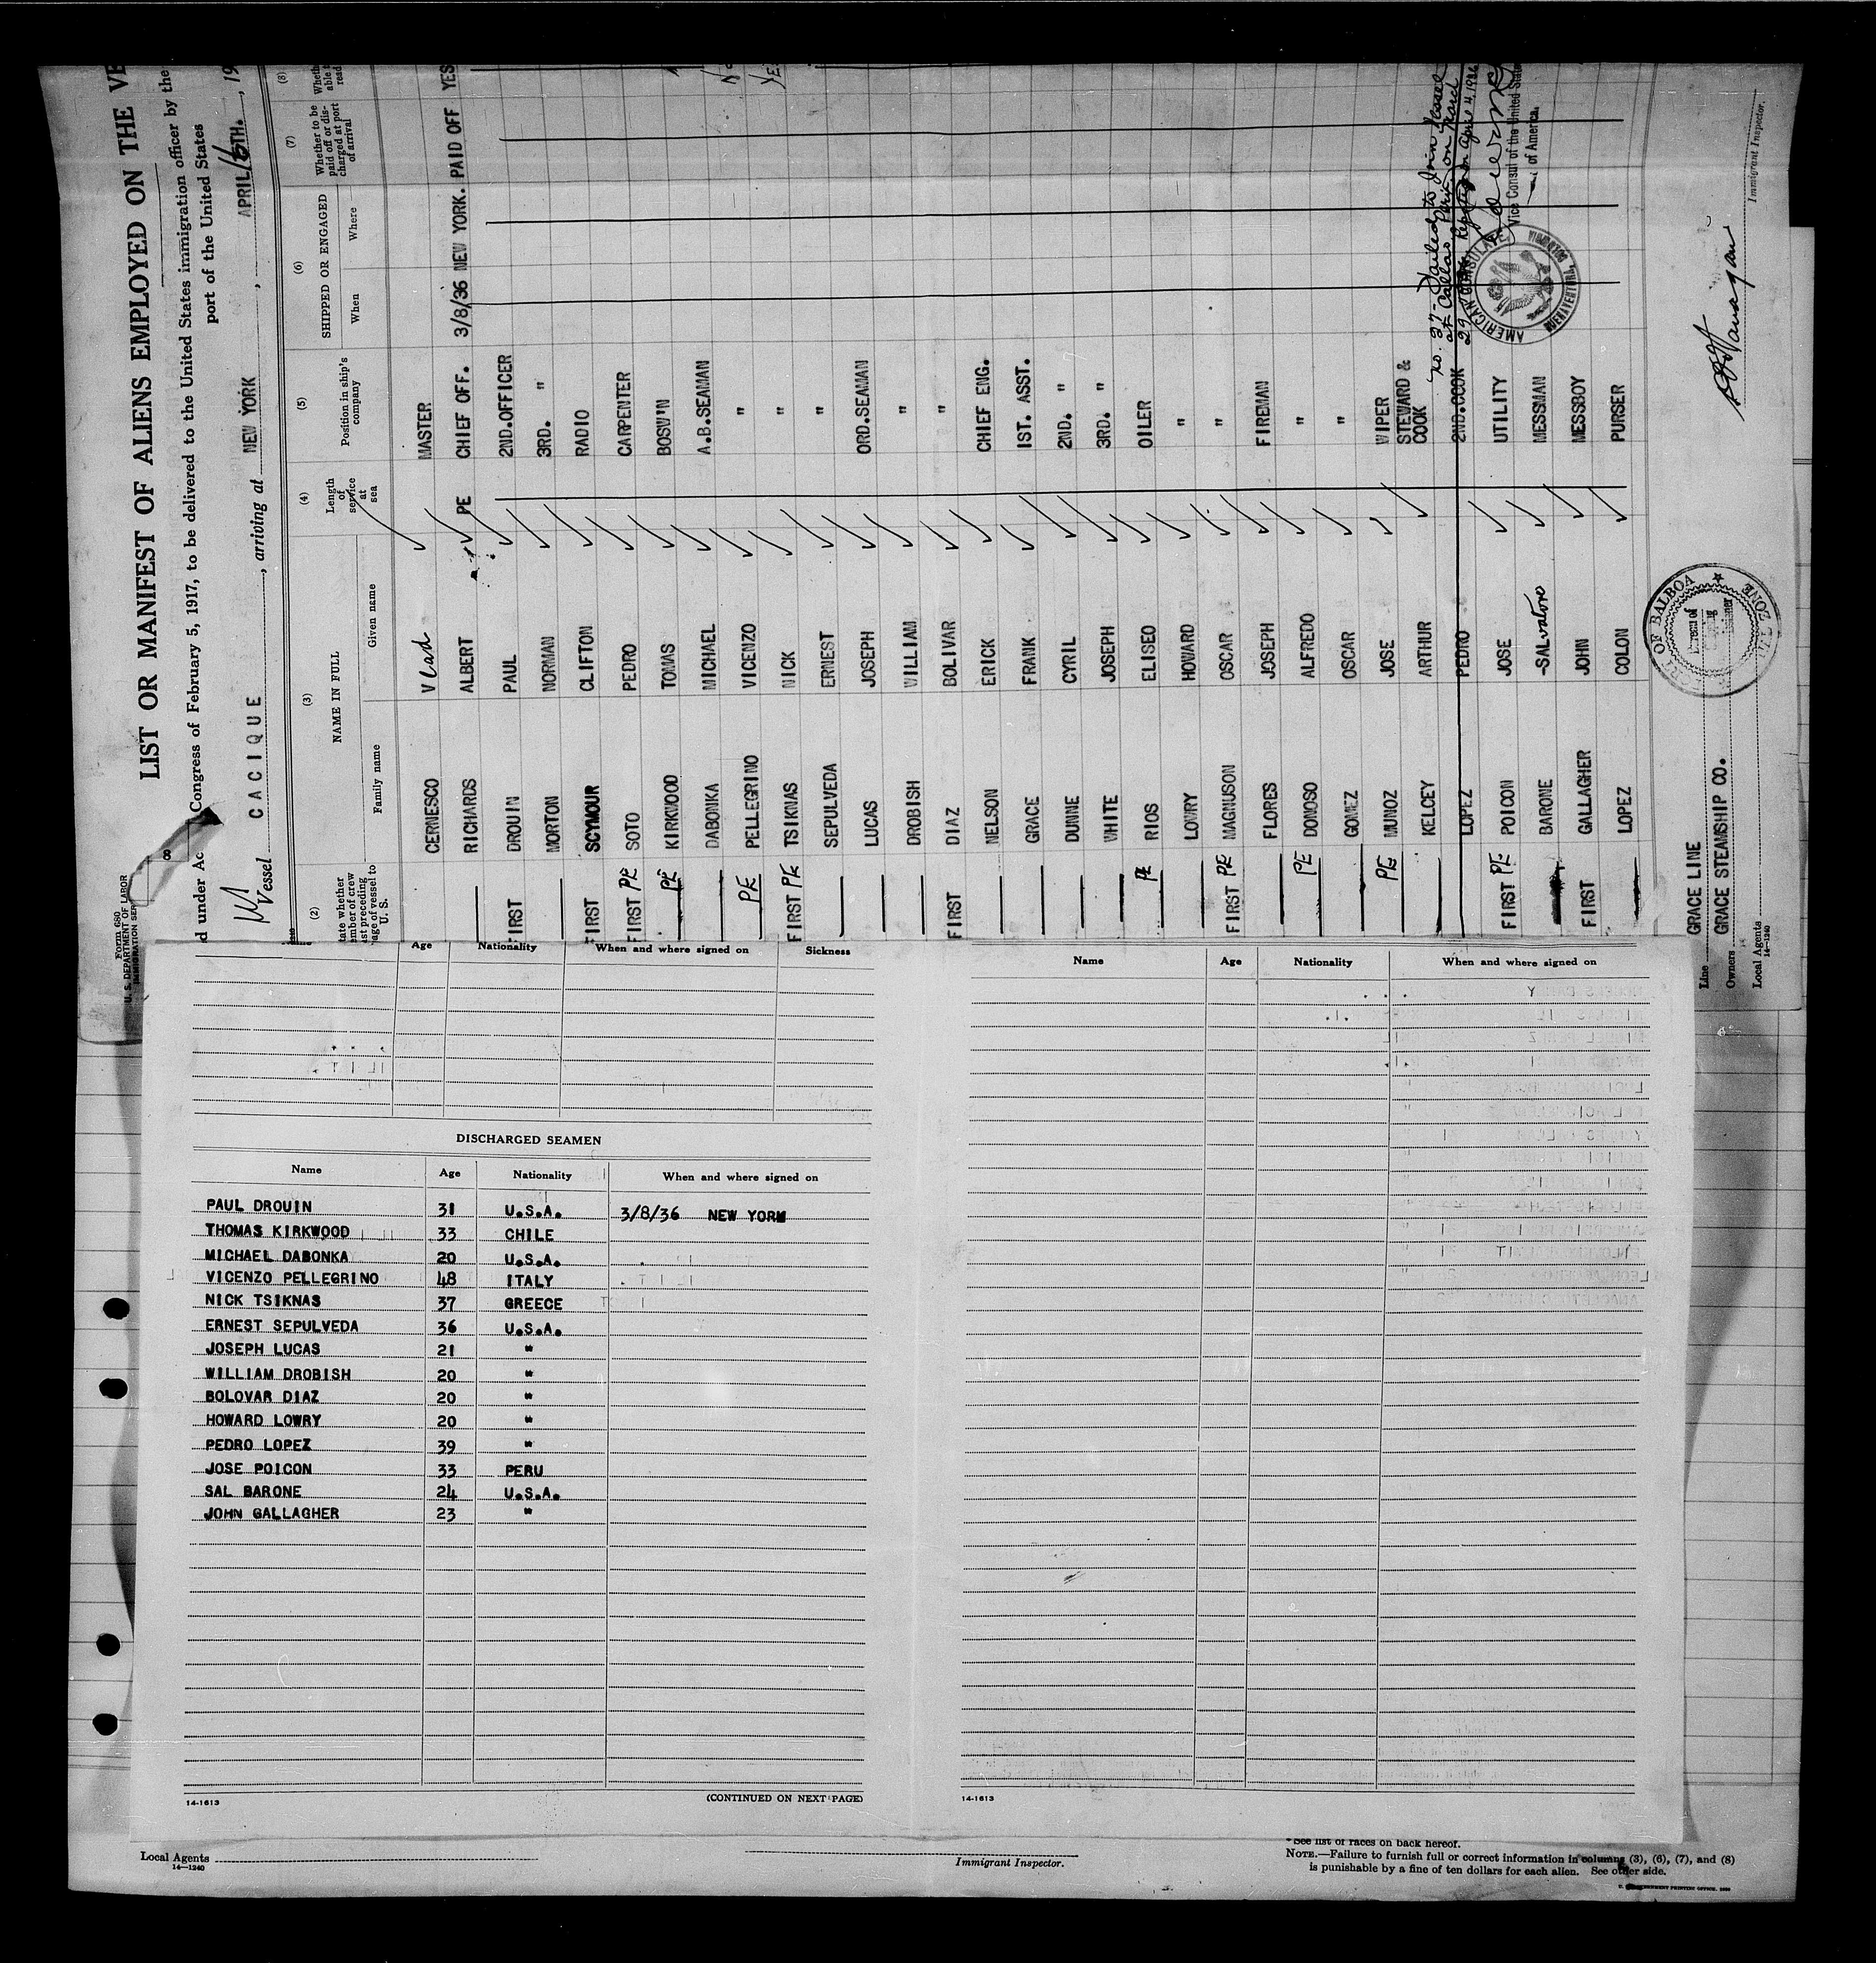 LIST OR MANIFEST OF ALIENS EMPLOYED ON THE VE
d under Ac Congress of February 5, 1917, to be delivered to the United States immigration officer by the
port of the United States
Vessel CACIQUE, arriving at NEW YORK, APRIL 16TH., 19
Form 680
U. S. DEPARTMENT OF LABOR
IMMIGRATION SER
8
(2) (3) (4) (5) (6) (7) (8)
NAME IN FULL
Family name Given name
Length of service at sea
Position in ship's company
SHIPPED OR ENGAGED
When Where
Whether to be paid off or discharged at port of arrival
CERNESCO Vlad MASTER
RICHARDS ALBERT PE CHIEF OFF. 3/8/36 NEW YORK. PAID OFF YES
FIRST DROUIN PAUL 2ND.OFFICER
MORTON NORMAN 3RD. "
FIRST SCYMOUR CLIFTON RADIO
FIRST PE SOTO PEDRO CARPENTER
PE KIRKWOOD TOMAS BOSW'N
DABONKA MICHAEL A.B.SEAMAN
PE PELLEGRINO VICENZO "
FIRST PE TSIKNAS NICK "
SEPULVEDA ERNEST "
LUCAS JOSEPH ORD.SEAMAN
DROBISH WILLIAM "
FIRST DIAZ BOLIVAR "
NELSON ERICK CHIEF ENG.
GRACE FRANK 1ST. ASST.
DUNNE CYRIL 2ND. "
WHITE JOSEPH 3RD. "
PE RIOS ELISEO OILER
LOWRY HOWARD "
FIRST PE MAGNUSON OSCAR "
FLORES JOSEPH FIREMAN
PE DONOSO ALFREDO "
GOMEZ OSCAR "
PE MUNOZ JOSE WIPER
KELCEY ARTHUR STEWARD & COOK
LOPEZ PEDRO 2ND.COOK
FIRST PE POICON JOSE UTILITY
BARONE SALVATORE MESSMAN
FIRST GALLAGHER JOHN MESSBOY
LOPEZ COLON PURSER
No. 27- Failed to join vessel
at Callao Peru, on March
29
April 4, 1936
Vice Consul of the United States
of America.
AMERICAN CONSULATE
BUENAVENTURA,
PORT OF BALBOA
CANAL ZONE
Line GRACE LINE
Owners GRACE STEAMSHIP CO.
Local Agents
14—1240
Immigrant Inspector.
Age Nationality When and where signed on Sickness
DISCHARGED SEAMEN
Name Age Nationality When and where signed on
PAUL DROUIN 31 U.S.A. 3/8/36 NEW YORK
THOMAS KIRKWOOD 33 CHILE
MICHAEL DABONKA 20 U.S.A.
VICENZO PELLEGRINO 48 ITALY
NICK TSIKNAS 37 GREECE
ERNEST SEPULVEDA 36 U.S.A.
JOSEPH LUCAS 21 "
WILLIAM DROBISH 20 "
BOLOVAR DIAZ 20 "
HOWARD LOWRY 20 "
PEDRO LOPEZ 39 "
JOSE POICON 33 PERU
SAL BARONE 24 U.S.A.
JOHN GALLAGHER 23 "
14-1613
(CONTINUED ON NEXT PAGE)
Name Age Nationality When and where signed on
14-1613
Local Agents
14—1240
Immigrant Inspector.
* See list of races on back hereof.
NOTE.—Failure to furnish full or correct information in columns (3), (6), (7), and (8)
is punishable by a fine of ten dollars for each alien. See other side.